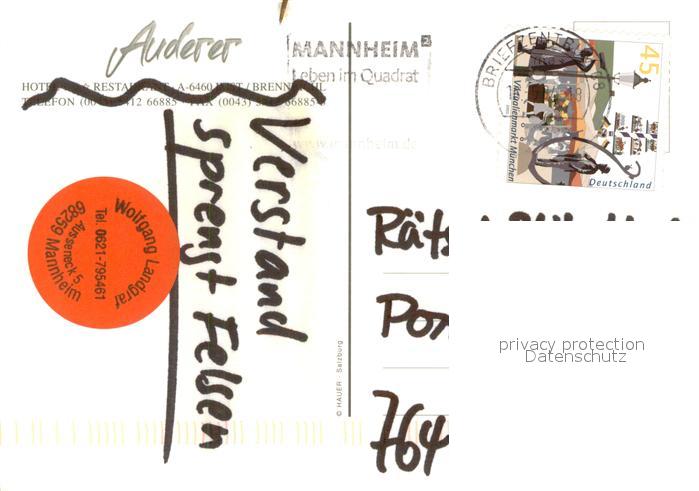 Auderer
HOTEL RESTAURANT, A-6460 IMST / BRENNBICHL
TELEFON (0043) 5412 66885 FAX (0043) 5412 66885
MANNHEIM²
Leben im Quadrat
www.mannheim.de
BRIEFZENTRUM 68
45
Viktualienmarkt München
Deutschland
Verstand
sprengt Felsen
Wolfgang Landgraf
Tel. 0621-795461
Ausseneck 5
68259 Mannheim
© HAUER · Salzburg
Räts
Pos
764
privacy protection
Datenschutz